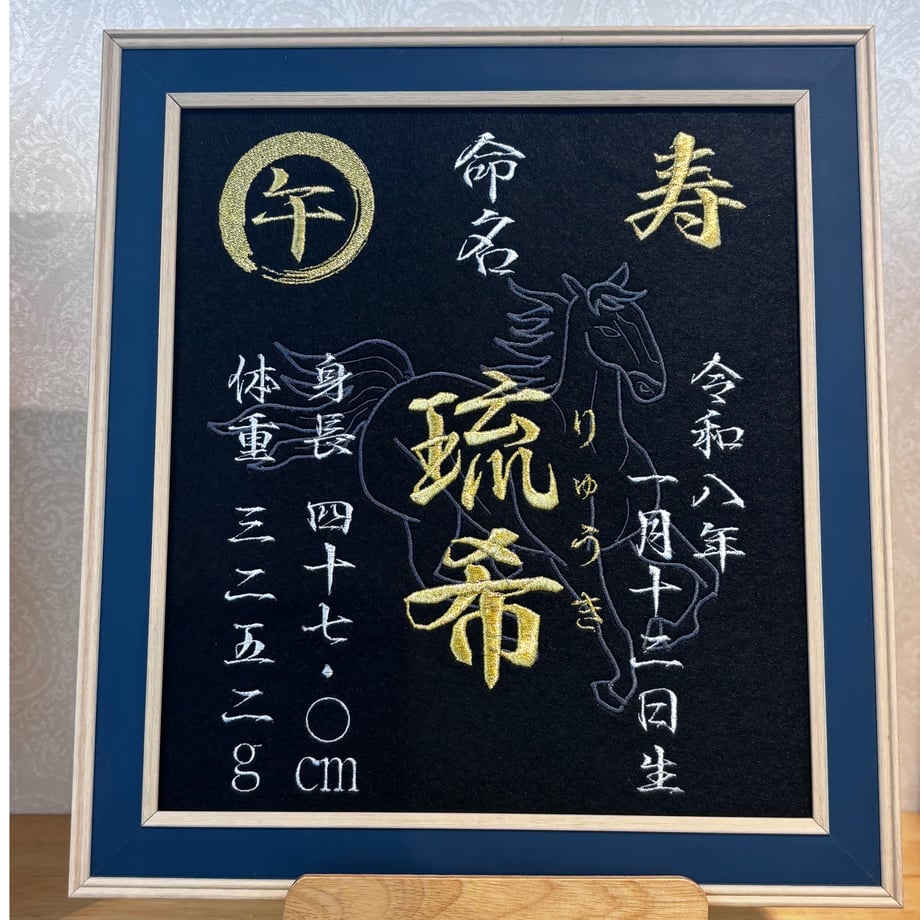 寿
令和八年
一月十三日生
命名
りゅうき
琉希
身長 四十七・〇cm
体重 三二五二g
午